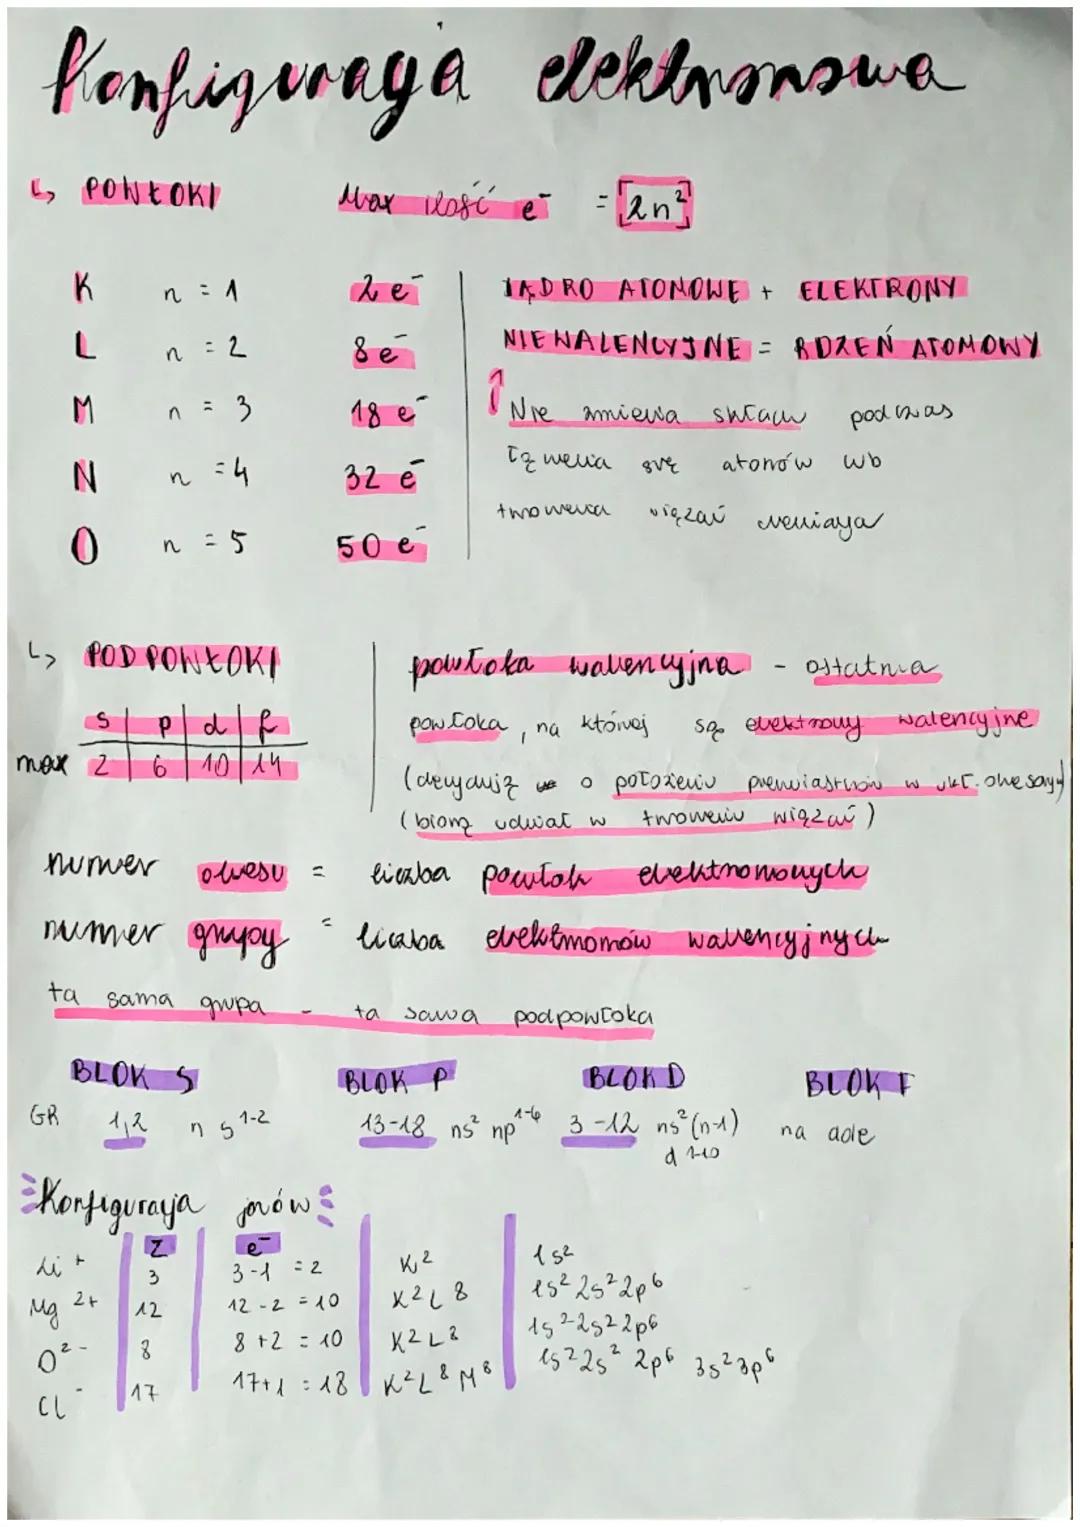 Konfiguracja elektronowa
↳ POWŁOKI Max ilość e⁻ = [2n²]
K n = 1 2 e⁻
L n = 2 8 e⁻
M n = 3 18 e⁻
N n = 4 32 e⁻
O n = 5 50 e⁻
JĄDRO ATOMOWE + ELEKTRONY
NIEWALENCYJNE = RDZEŃ ATOMOWY
↑ Nie zmienia składu podczas
łączenia się atomów lub
tworzenia wiązań
↳ PODPOWŁOKI
s | p | d | f
max 2 | 6 | 10 | 14
powłoka walencyjna - ostatnia
powłoka, na której są elektrony walencyjne
(decydują o położeniu pierwiastków w ukł. okresowym)
(biorą udział w tworzeniu wiązań)
numer okresu = liczba powłok elektronowych
numer grupy = liczba elektronów walencyjnych
ta sama grupa - ta sama podpowłoka
BLOK S BLOK P BLOK D BLOK F
GR 1,2 n s¹⁻² 13-18 ns² np¹⁻⁶ 3-12 ns² (n-1) na dole
d 1-10
Konfiguracja jonów
Z e⁻
Li⁺ 3 3-1 = 2 K² 1s²
Mg²⁺ 12 12-2 = 10 K² L⁸ 1s² 2s² 2p⁶
O²⁻ 8 8+2 = 10 K² L⁸ 1s² 2s² 2p⁶
Cl⁻ 17 17+1 = 18 K² L⁸ M⁸ 1s² 2s² 2p⁶ 3s² 3p⁶